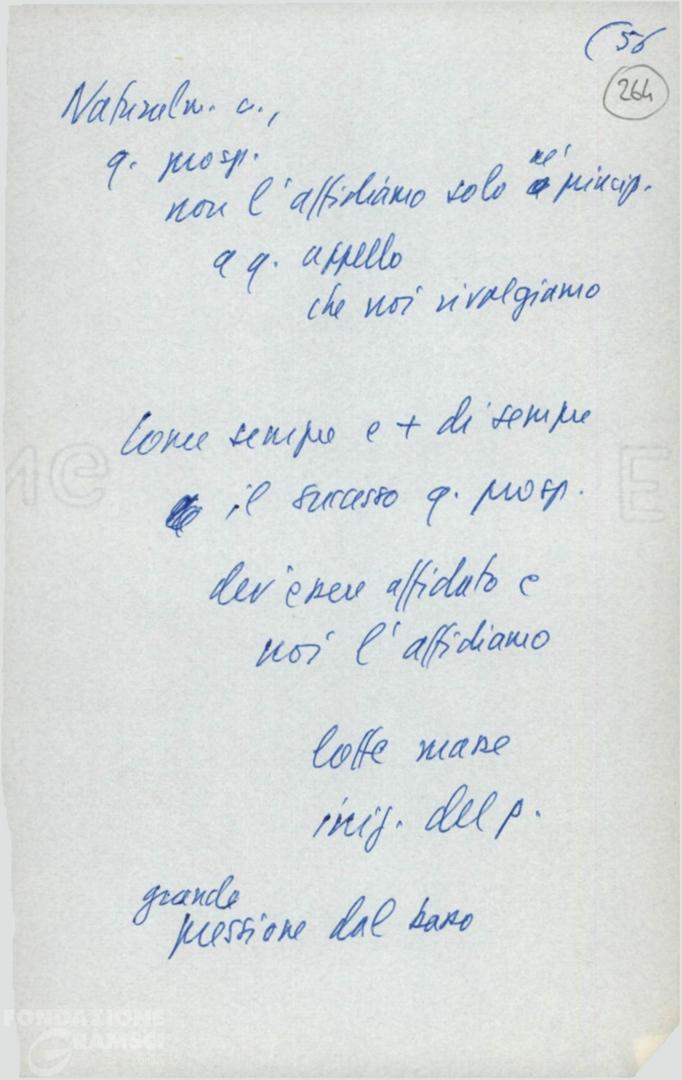 (56
264
Naturalm. c.,
q. prosp.
non l'affidiamo solo né princip.
a q. appello
che noi rivolgiamo
Come sempre e + di sempre
il successo q. prosp.
dev'essere affidato e
noi l'affidiamo
lotte masse
iniz. del p.
grande
pressione dal basso
FONDAZIONE
GRAMSCI